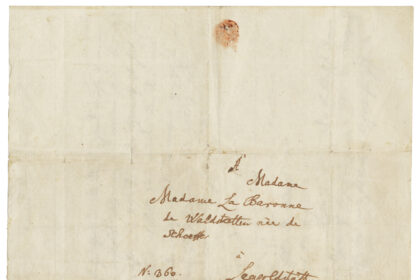 A
Madame
Madame La Baronne
de Waldstetten née de
Scheffe
à
N: 360. Leopoldstatt